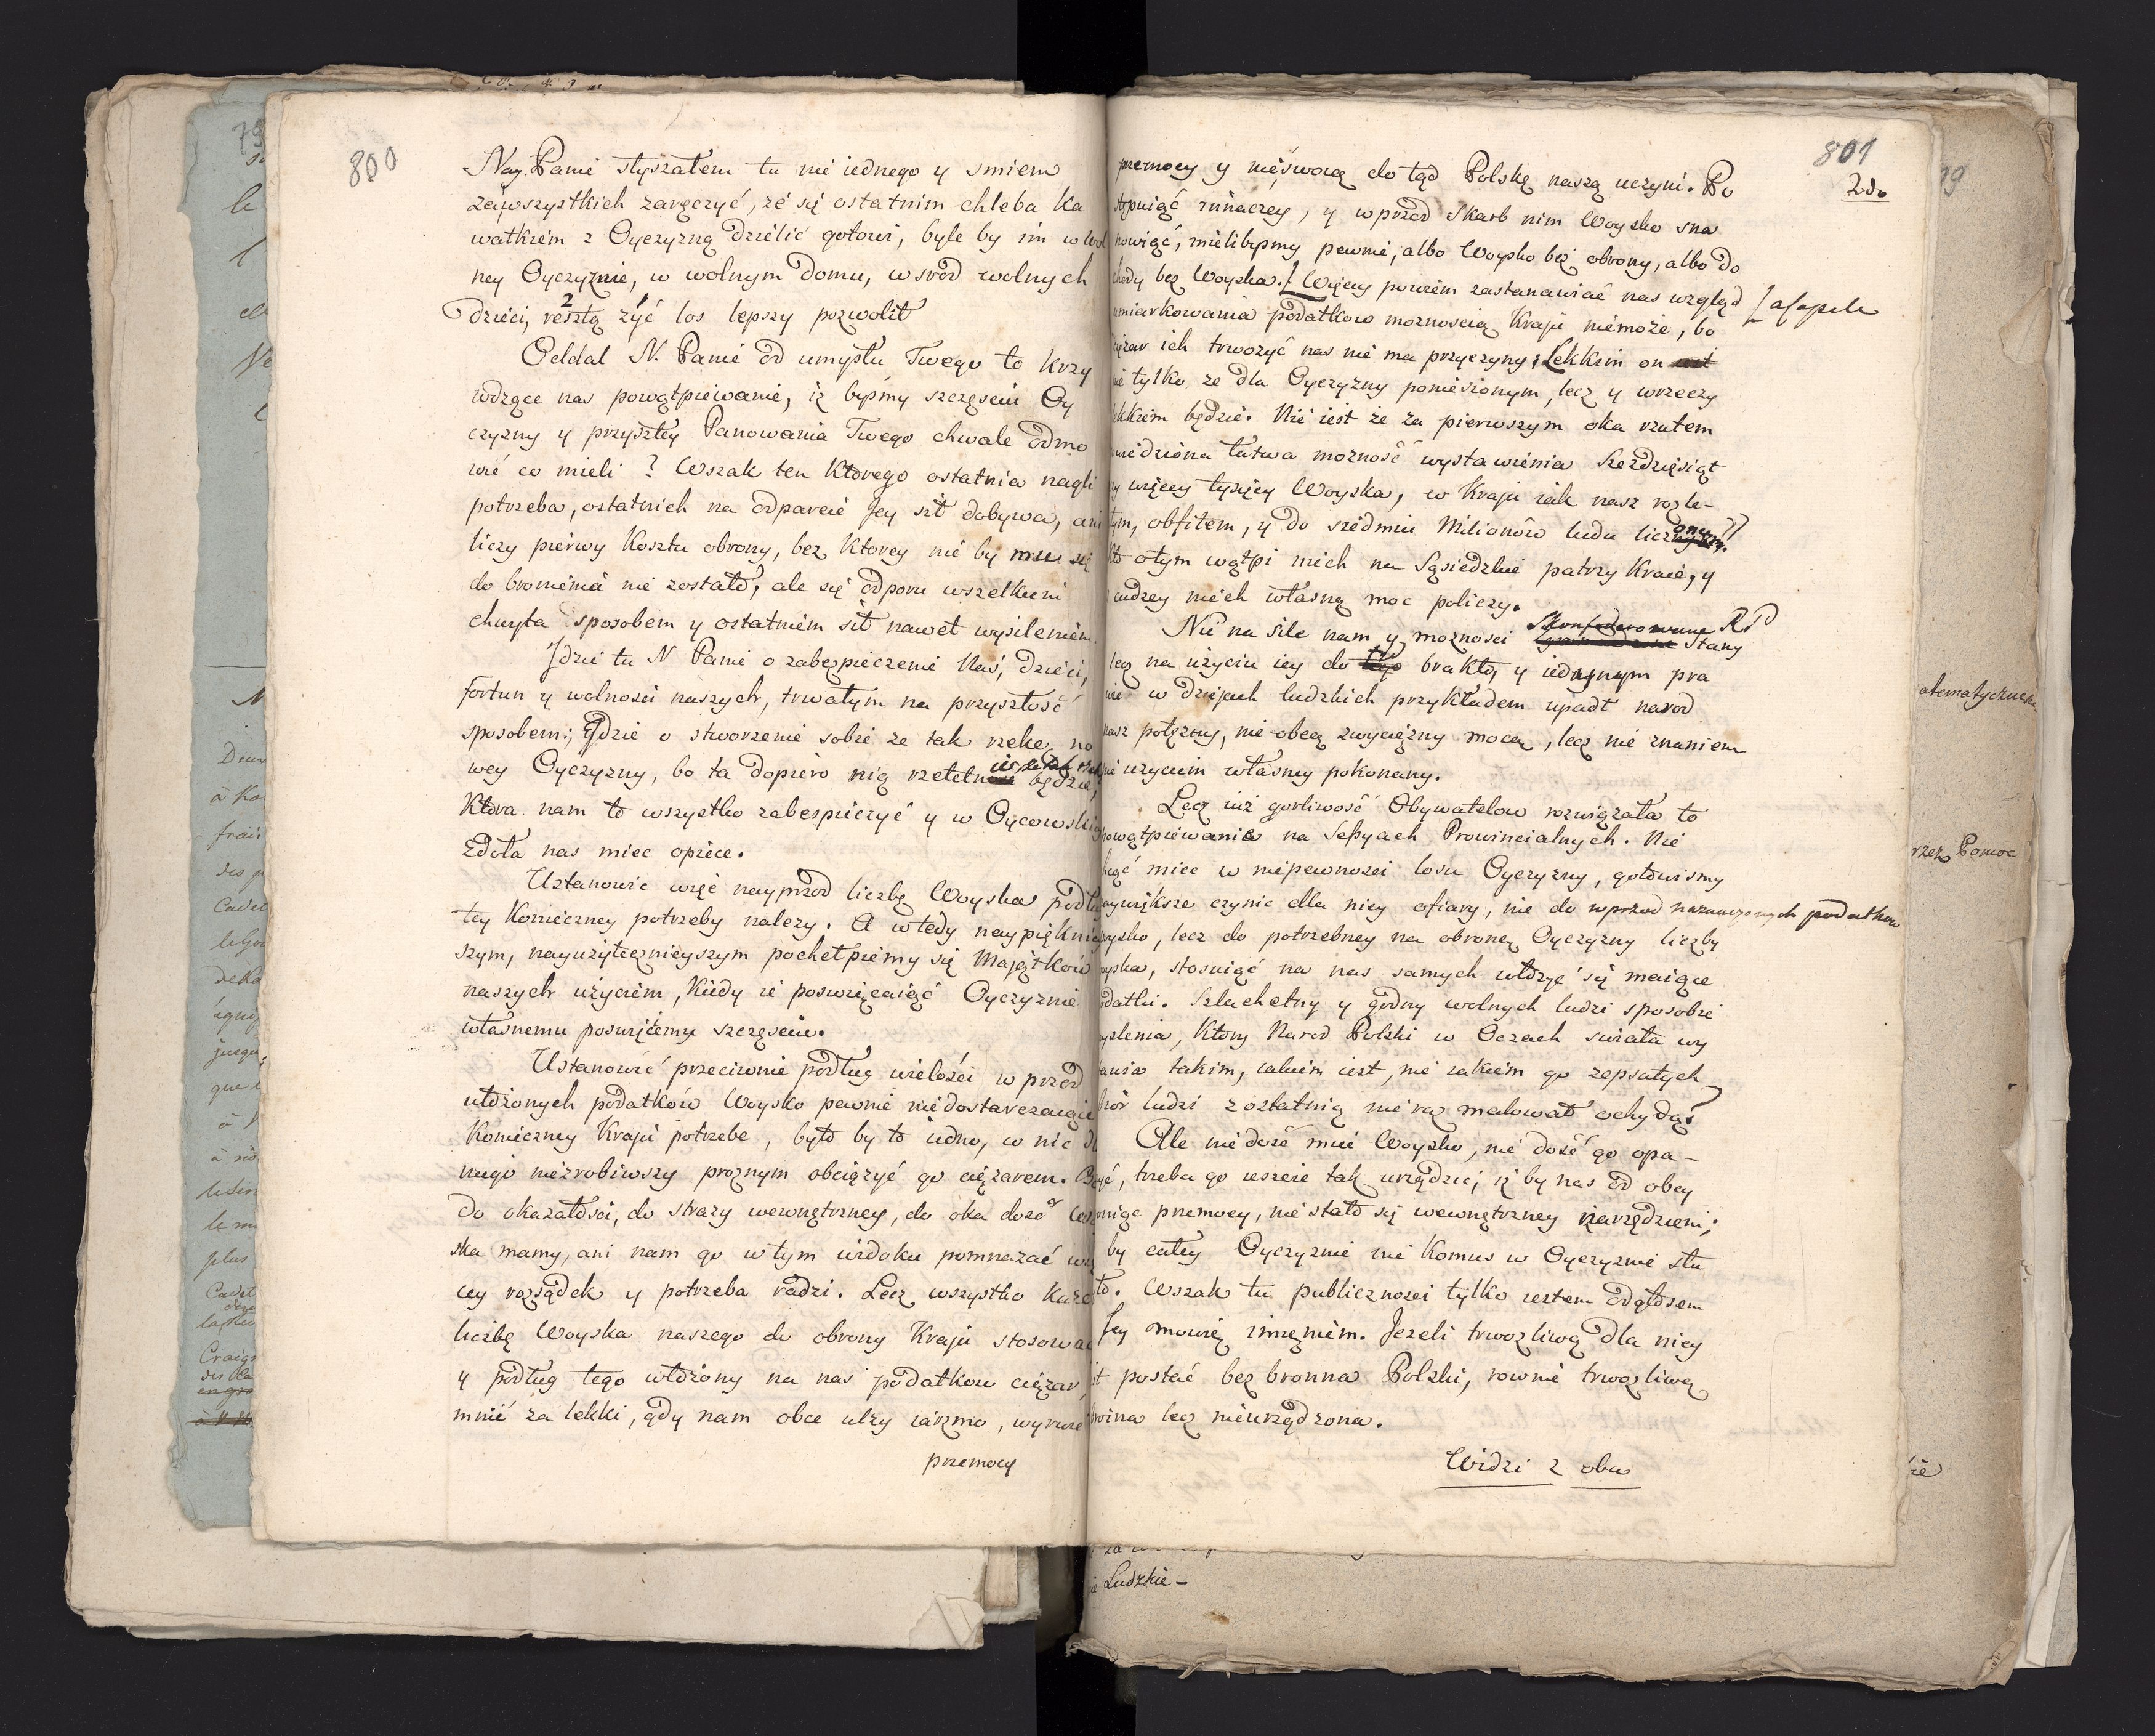 800
Nay. Panie słyszałem tu nie iednego y smiem
zawszystkich zaręczyć, że się ostatnim chleba ka
wałkiem z Oyczyzną dzielić gotowi, byle by im w wol
ney Oyczyznie, w wolnym domu, wsrod wolnych
dzieci, resztą 2 żyć 1 los lepszy pozwolił
Oddal N. Panie od umysłu Twego to krzy
wdzące nas powątpiewanie, iż byśmy szczęsciu Oy
czyzny y przyszłey Panowania Twego chwale odmo
wić co mieli? Wszak ten ktorego ostatnia nagli
potrzeba, ostatnich na odparcie Jey sił dobywa, ani
liczy pierwy kosztu obrony, bez ktorey nie by mu się
do bronienia nie zostało, ale się odporu wszelkiem
chwyta sposobem y ostatniem sił nawet wysileniem.
Jdzie tu N Panie o zabezpieczenie Nas, dzieci,
fortun y wolnosci naszych, trwałym na przyszłość
sposobem; Jdzie o stworzenie sobie ze tak rzekę no
wey Oyczyzny, bo ta dopiero nią rzetelnie będzie,
ktora nam to wszystko zabespieczyć y w Oycowskiey
zdoła nas miec opiece.
Ustanowic więc nayprzod liczbę Woyska podług
tey konieczney potrzeby należy. A wtedy naypięknie
szym, nayużytecznieyszym pochełpiemy się Maiątków
naszych użyciem, kiedy ie poswięcaiąć Oyczyznie
własnemu poswięciemy szczęsciu.
Ustanowić przeciwnie podług wielości w przod
ułożonych podatków Woysko pewnie niedostarczaiące
konieczney Kraju potrzebie, było by to iedno, co nic do
niego niezrobiwszy proznym obciążyć go ciężarem. Bo
do okazałosci, do straży wewnętrzney, do oka dosć Woy
ska mamy, ani nam go w tym widoku pomnażać wię
cey rozsądek y potrzeba radzi. Lecz wszystko każe
liczbę Woyska naszego do obrony Kraju stosować
y podług tego włożony na nas podatkow ciężar,
mnieć za lekki, gdy nam obce ulży iarzmo, wyrwie
przemocy
801
2do
przemocy y nieswoią do tąd Polskę naszą uczyni. Po
stępuiąć innaczey, y wprzod Skarb nim Woysko sta
nowiąć, mielibysmy pewnie, albo Woysko bez obrony, albo do
chody bez Woyska. [ Więcey powiem zastanawiać nas wzgląd [ a capite
umiarkowania podatkow moznoscią Kraju niemoże, bo
ciężar ich trwożyć nas nie ma przyczyny; Lekkim on
nie tylko ze dla Oyczyzny poniesionym, lecz y wrzeczy
lekkiem będzie. Nie iest że za pierwszym oka rzutem
widziana łatwa możność wystawienia Szesdziesiąt
czy więcey tysięcy Woyska, w Kraju iak nasz rozle-
łym, obfitem, y do siedmiu Milionów ludu
Kto otym wątpi niech na Sąsiedzkie patrzy Kraie, y
z cudzey niech własną moc policzy.
Nie na sile nam y moznosci Skonfederowane RP Stany
lecz na użyciu iey do tąd brakło, y iedynym pra
wie w dziejach ludzkich przykładem upadł narod
nasz potężny, nie obcą zwyciężny mocą, lecz nie znaniem
nie uzyciem własney pokonany.
Lecz iuż gorliwość Obywatelow rozwiązała to
powątpiewania na Sessyach Prowincialnych. Nie
chcąć miec w niepewnosci losu Oyczyzny, gotowismy
naywiększe czynic dla niey ofiary, nie do wprzod naznaczonych podatkow
Woysko, lecz do potrzebney na obronę Oyczyzny liczby
Woyska, stosuiąć na nas samych ułożyć się maiące
podatki. Szlachetny y godny wolnych ludzi sposobie
myslenia, ktory Narod Polski w Oczach swiata wy
stawia takim, iakim iest, nie iakiem go zepsutych
zbiór ludzi z ostatnią nie raz malował ochydą!
Ale niedość miec Woysko, nie dość go opa-
trzyć, trzeba go ieszcze tak urządzić, iż by nas od obcey
broniąc przemocy, nie stało się wewnętrzney narzędziem;
by całey Oyczyznie nie komus w Oyczyznie słu
żyło. Wszak tu publicznosci tylko iestem odgłosem
Jey mowię imięniem. Jezeli trwożliwą dla niey
iest postać bezbronna Polski, rownie trwożliwą
zbroina lecz nieurządzona.
Widzi z oba
79
atematyczne
rzez Pomoc
Ludzkie -